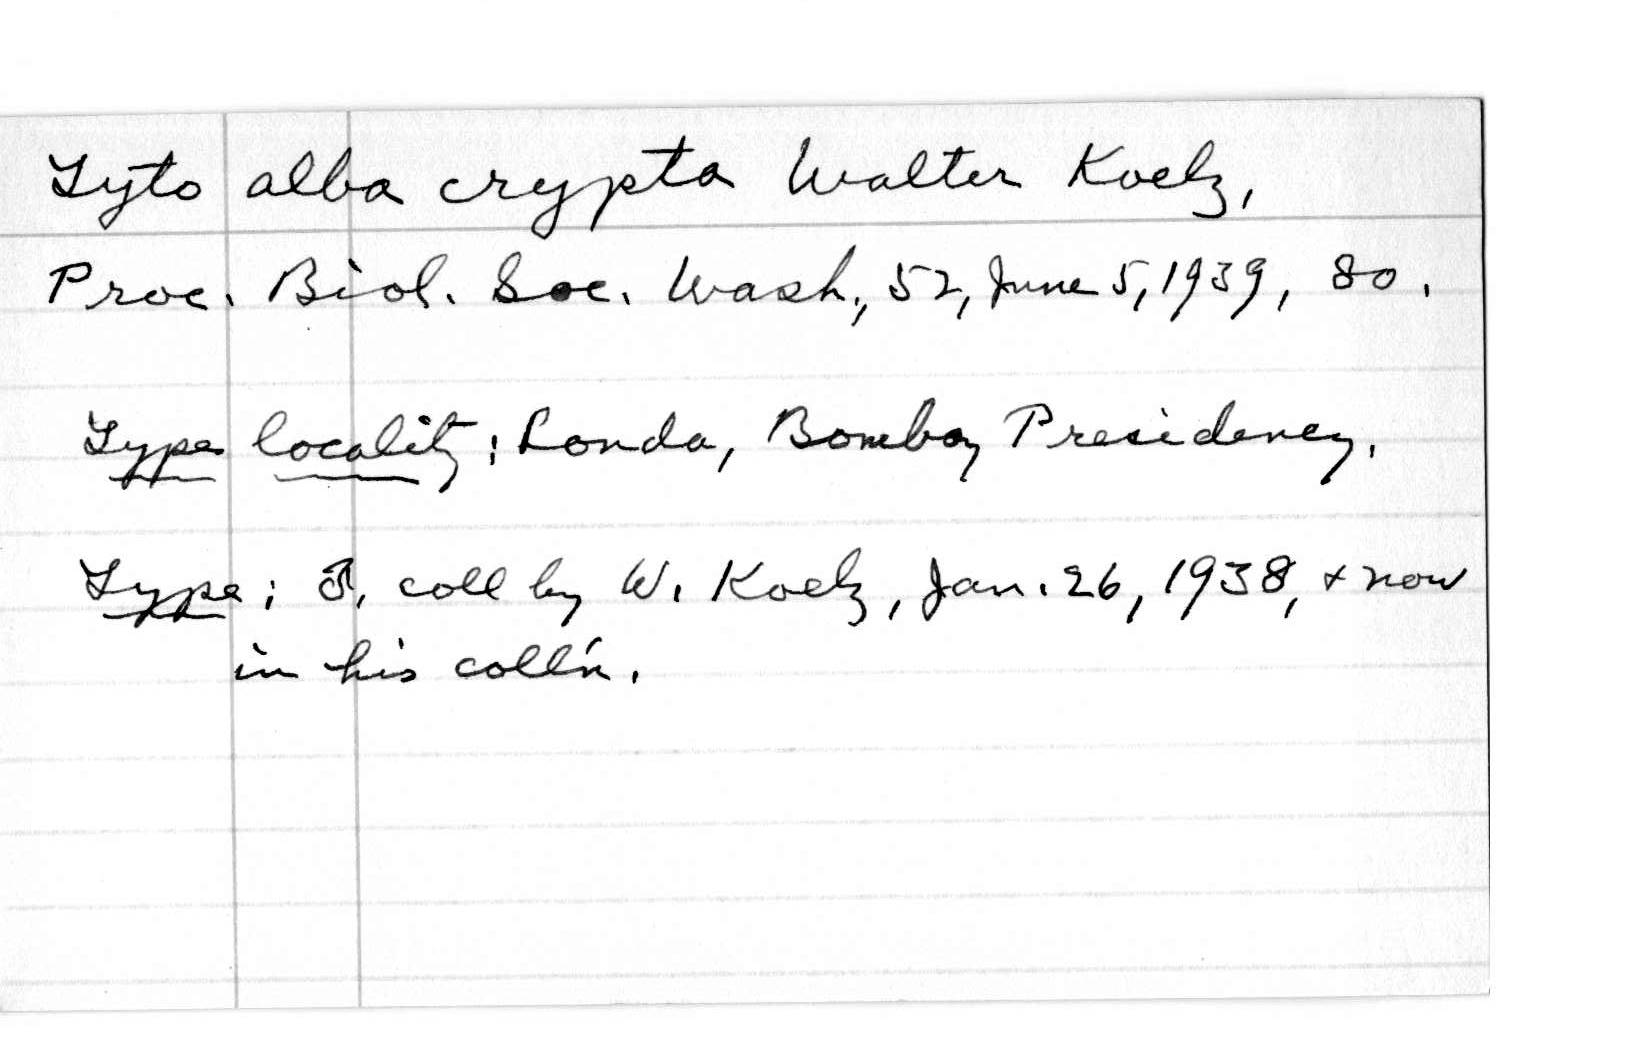 Tyto alba crypta Walter Koelz,
Proc. Biol. Soc. Wash., 52, June 5, 1939, 80.
Type locality: Londa, Bombay Presidency.
Type: ♂, coll by W. Koelz, Jan. 26, 1938, + now
in his coll'n.